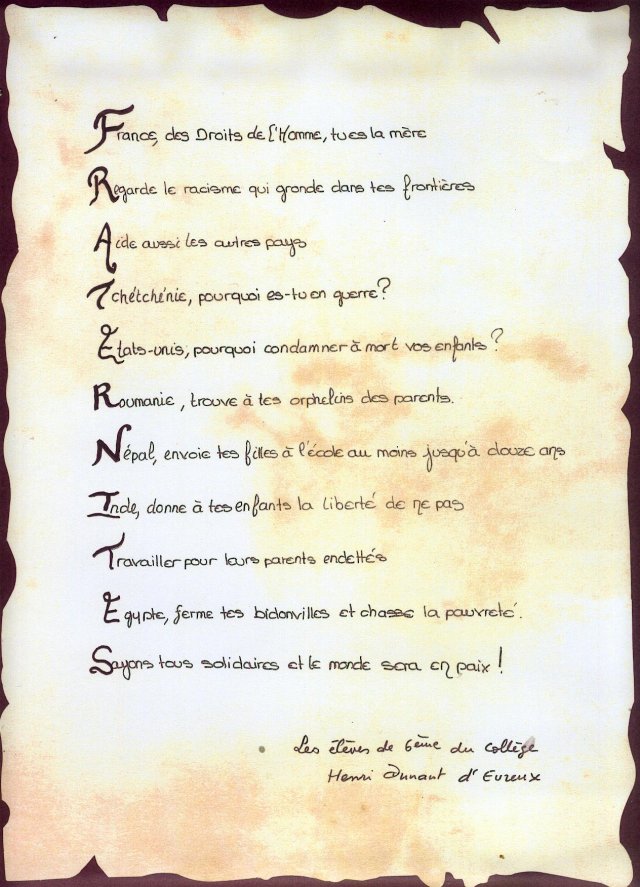 France, des Droits de l'Homme, tu es la mère
Regarde le racisme qui gronde dans tes frontières
Aide aussi les autres pays
Tchétchénie, pourquoi es-tu en guerre ?
États-unis, pourquoi condamner à mort vos enfants ?
Roumanie, trouve à tes orphelins des parents.
Népal, envoie tes filles à l'école au moins jusqu'à douze ans
Inde, donne à tes enfants la liberté de ne pas
Travailler pour leurs parents endettés
Egypte, ferme tes bidonvilles et chasse la pauvreté.
Sayons tous solidaires et le monde sera en paix !
Les élèves de 6ème du collège
Henri Dunant d'Evreux